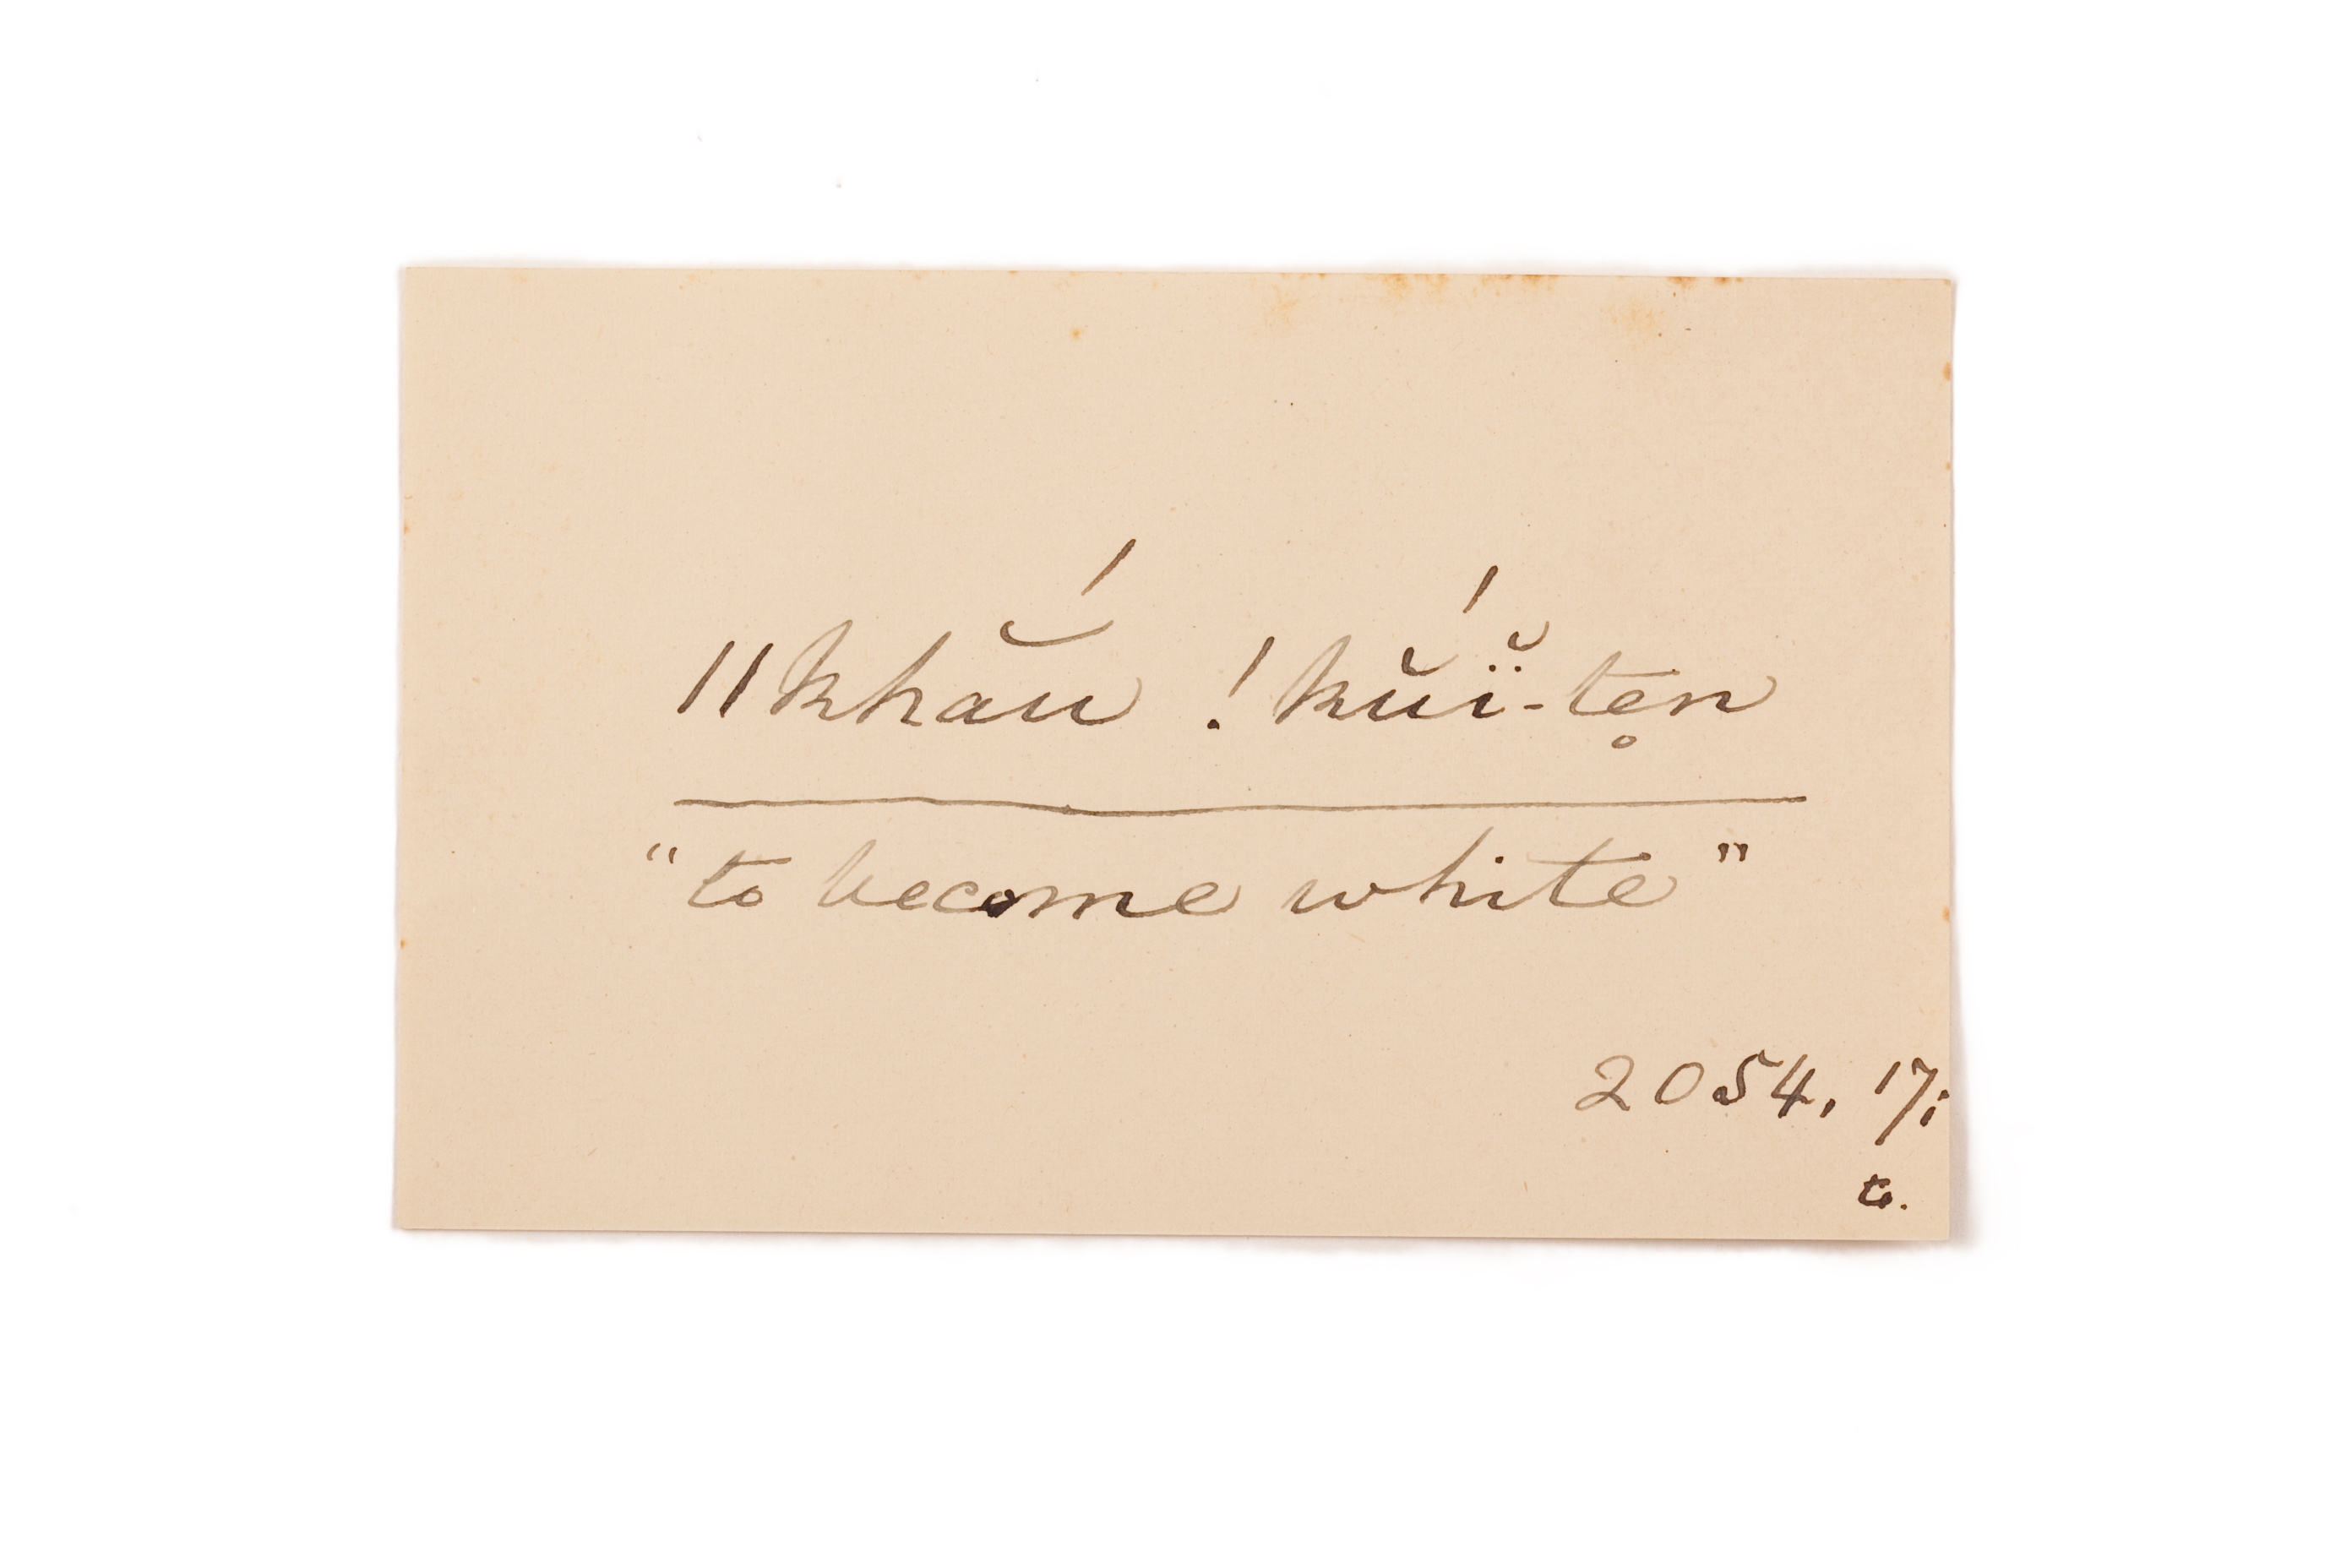 ǁkhaŭ́ !kŭí̈̆-te̥n
“to become white”
2054, 17;
to.